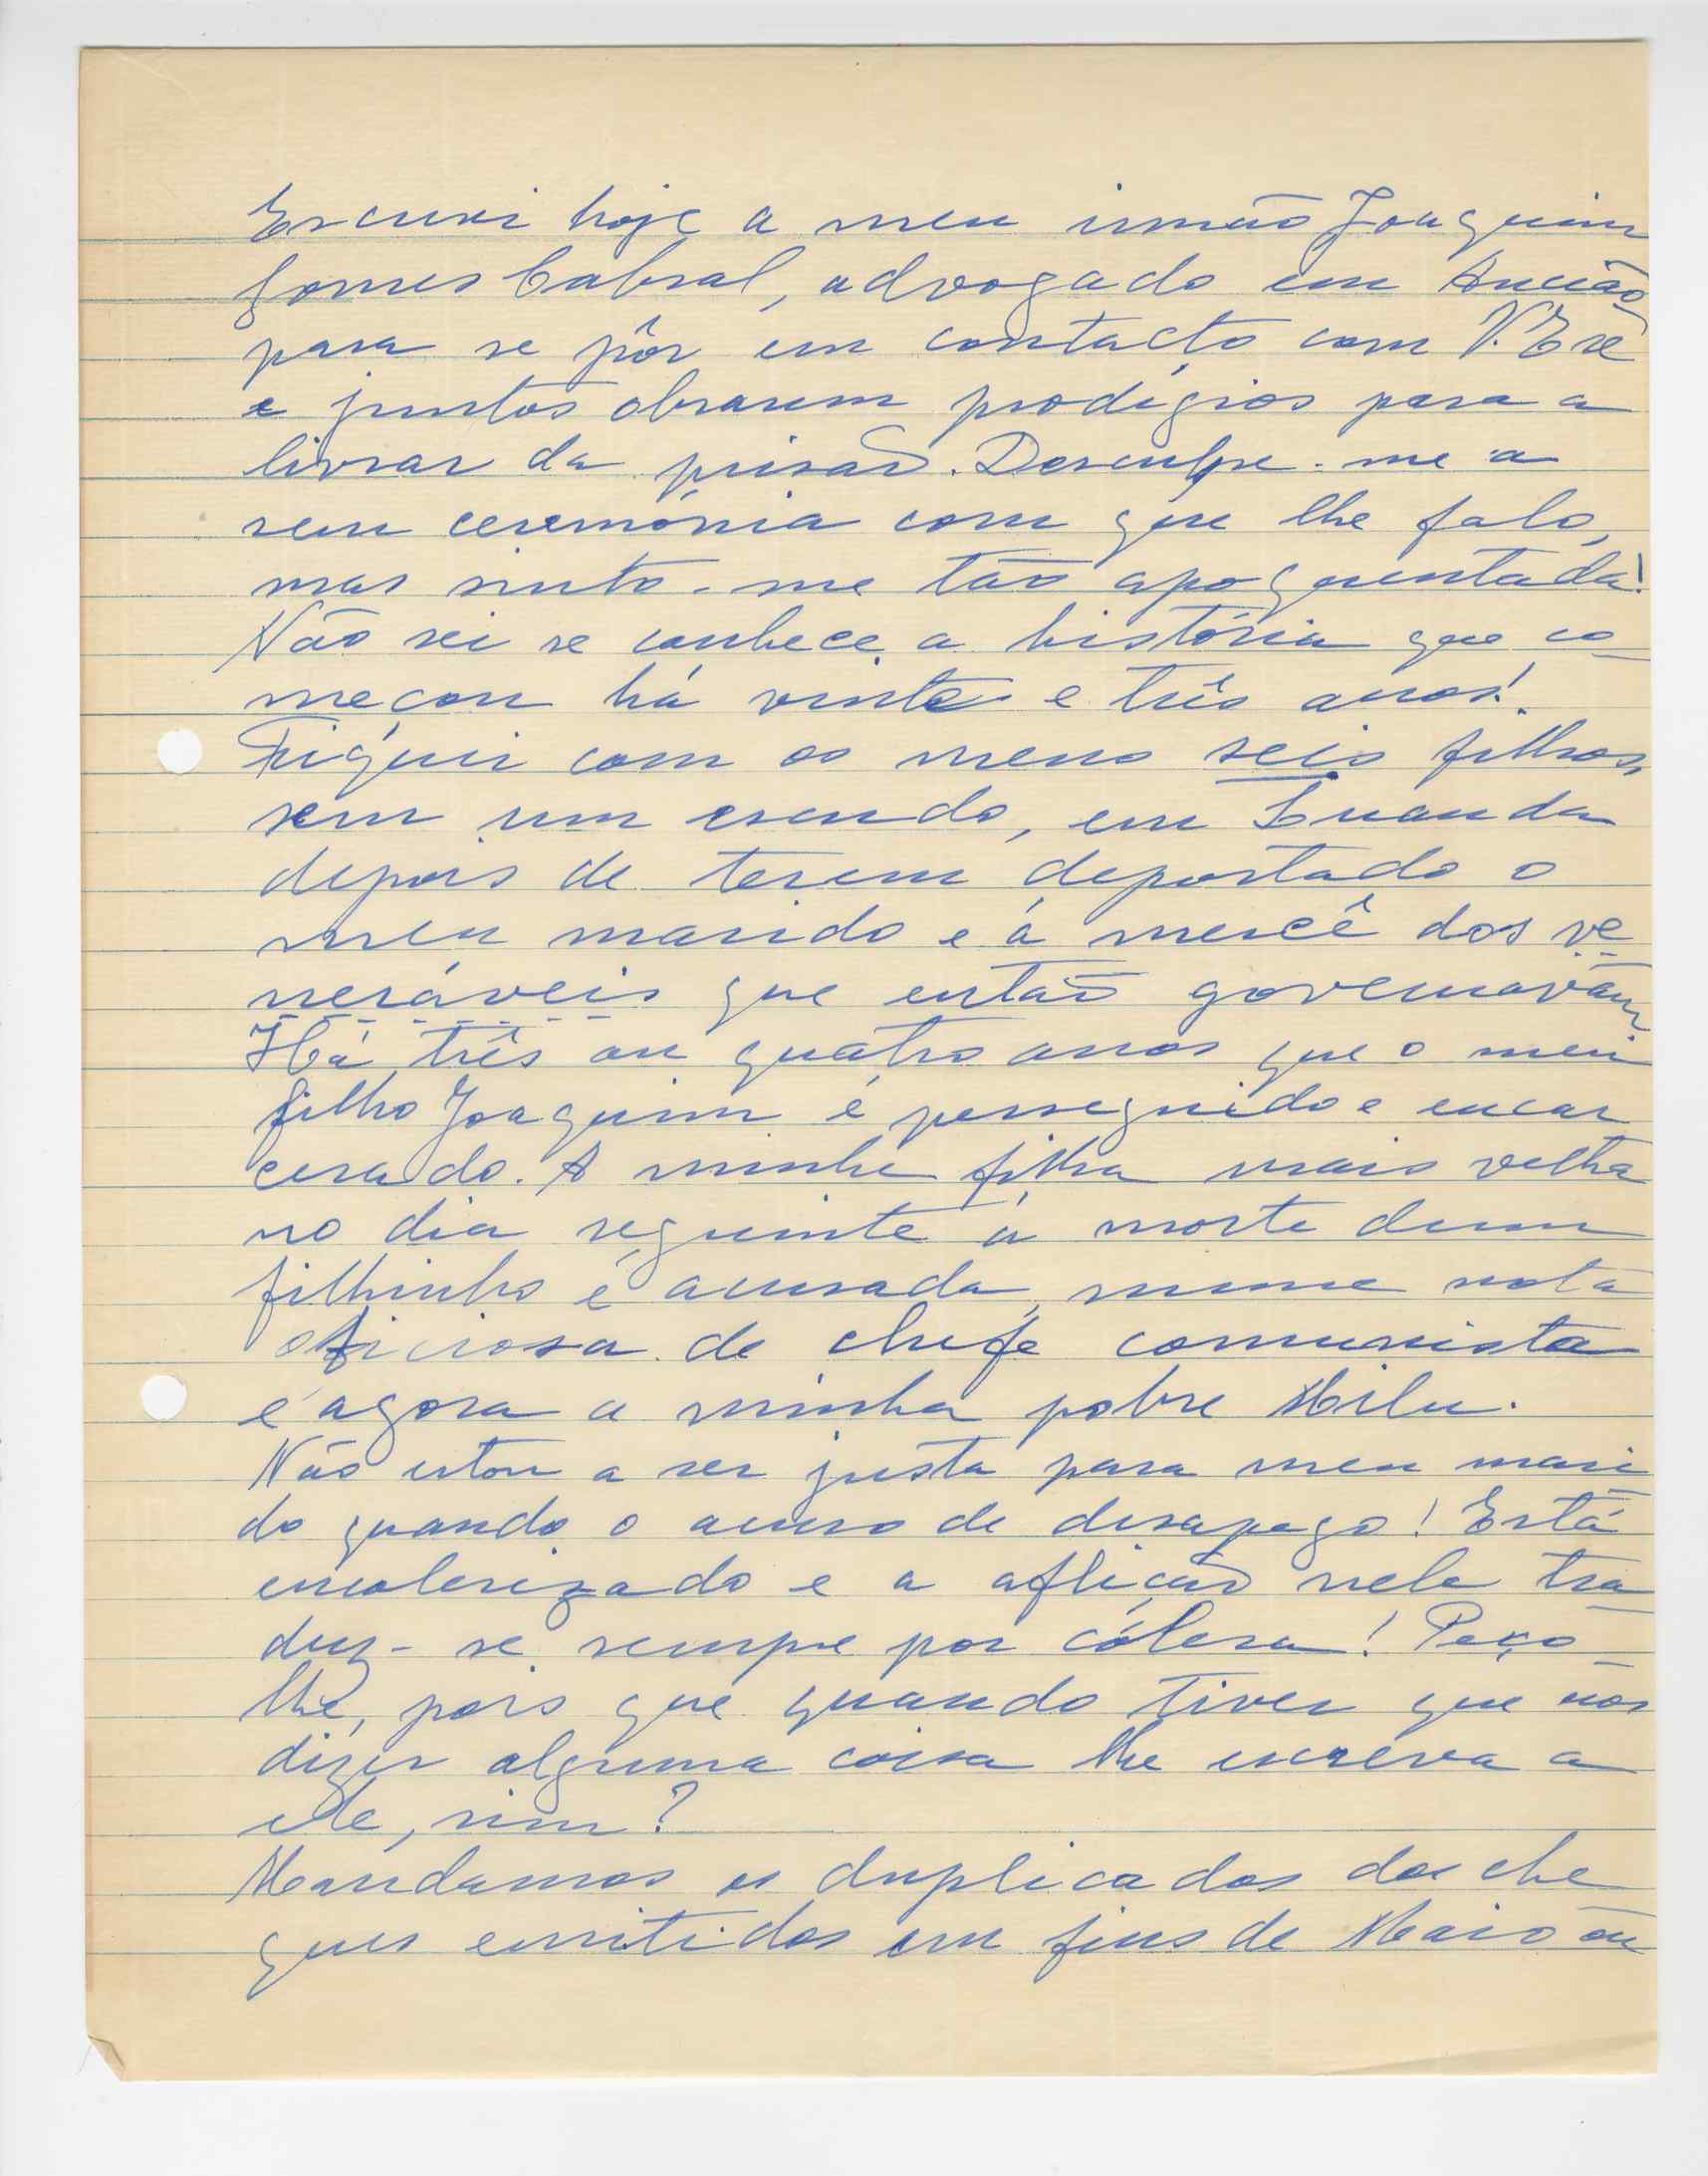 Escrevi hoje a meu irmão Joaquim
Gomes Cabral, advogado em Ancião
para se pôr em contacto com V. Exª
e juntos obrarem prodígios para a
livrar da prisão. Desculpe-me a
sem ceremónia com que lhe falo,
mas sinto-me tão apoquentada!
Não sei se conhece a história que co
meçou há vinte e três anos!
Fiquei com os meus seis filhos,
sem um escudo, em Luanda
depois de terem deportado o
meu marido e á mercê dos ve
neráveis que então governavam
Há três ou quatro anos que o meu
filho Joaquim é perseguido e encar
cerado. A minha filha mais velha
no dia seguinte á morte dum
filhinho é acusada, numa nota
oficiosa de chefe comunista
e agora a minha pobre Milu.
Não estou a ser justa para meu mari
do quando o acuso de desapego! Está
encolerizado e a aflição nele tra
duz-se sempre por cólera! Peço
lhe, pois que quando tiver que nos
dizer alguma coisa lhe escreva a
ele, sim?
Mandamos os duplicados dos che
ques emitidos em fins de Maio ou